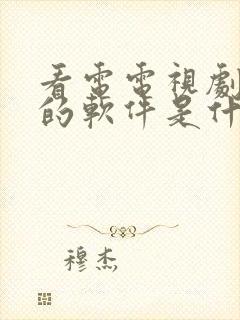 看雷電視劇
的軟件是什
穆杰